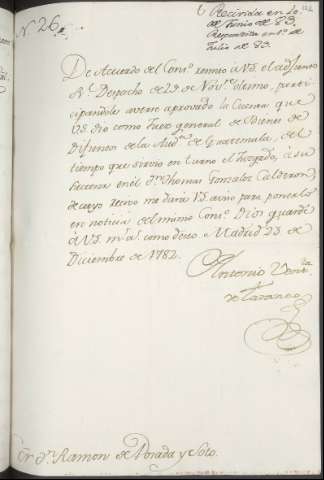 N. 26.
Recivida en 10
de Junio de 83.
Respondida en 1º de
Julio de 83.
De Acuerdo del Consº. remito à VS. el adjunto
Rl. Despacho de 29 de Novre. ultimo, partici-
pandole averse aprovado la Cuenta que
VS. dio como Juez general de Bienes de
Difuntos de la Audª. de Guatemala, del
tiempo que sirvio en turno el Juzgado, à su
Thomas Gonzalez Calderon,
de cuyo recivo me dará VS. aviso para ponerlo
en noticia del mismo Consº. Dios guarde
à VS. ms. as. como deseo. Madrid 23 de
Diciembre de 1782.
Antonio Ventura
de Taranco
Sr. Dn. Ramon de Posada y Soto.